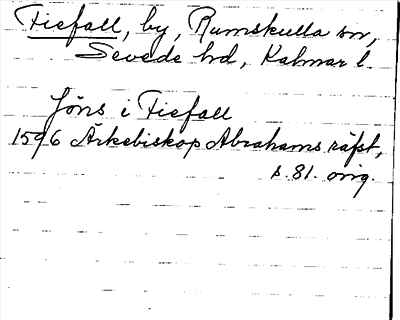 Fiefall, by, Rumskulla sn,
Sevede hd, Kalmar l.
Jöns i Fiefall
1596 Ärkebiskop Abrahams räfst,
s. 81. orig.